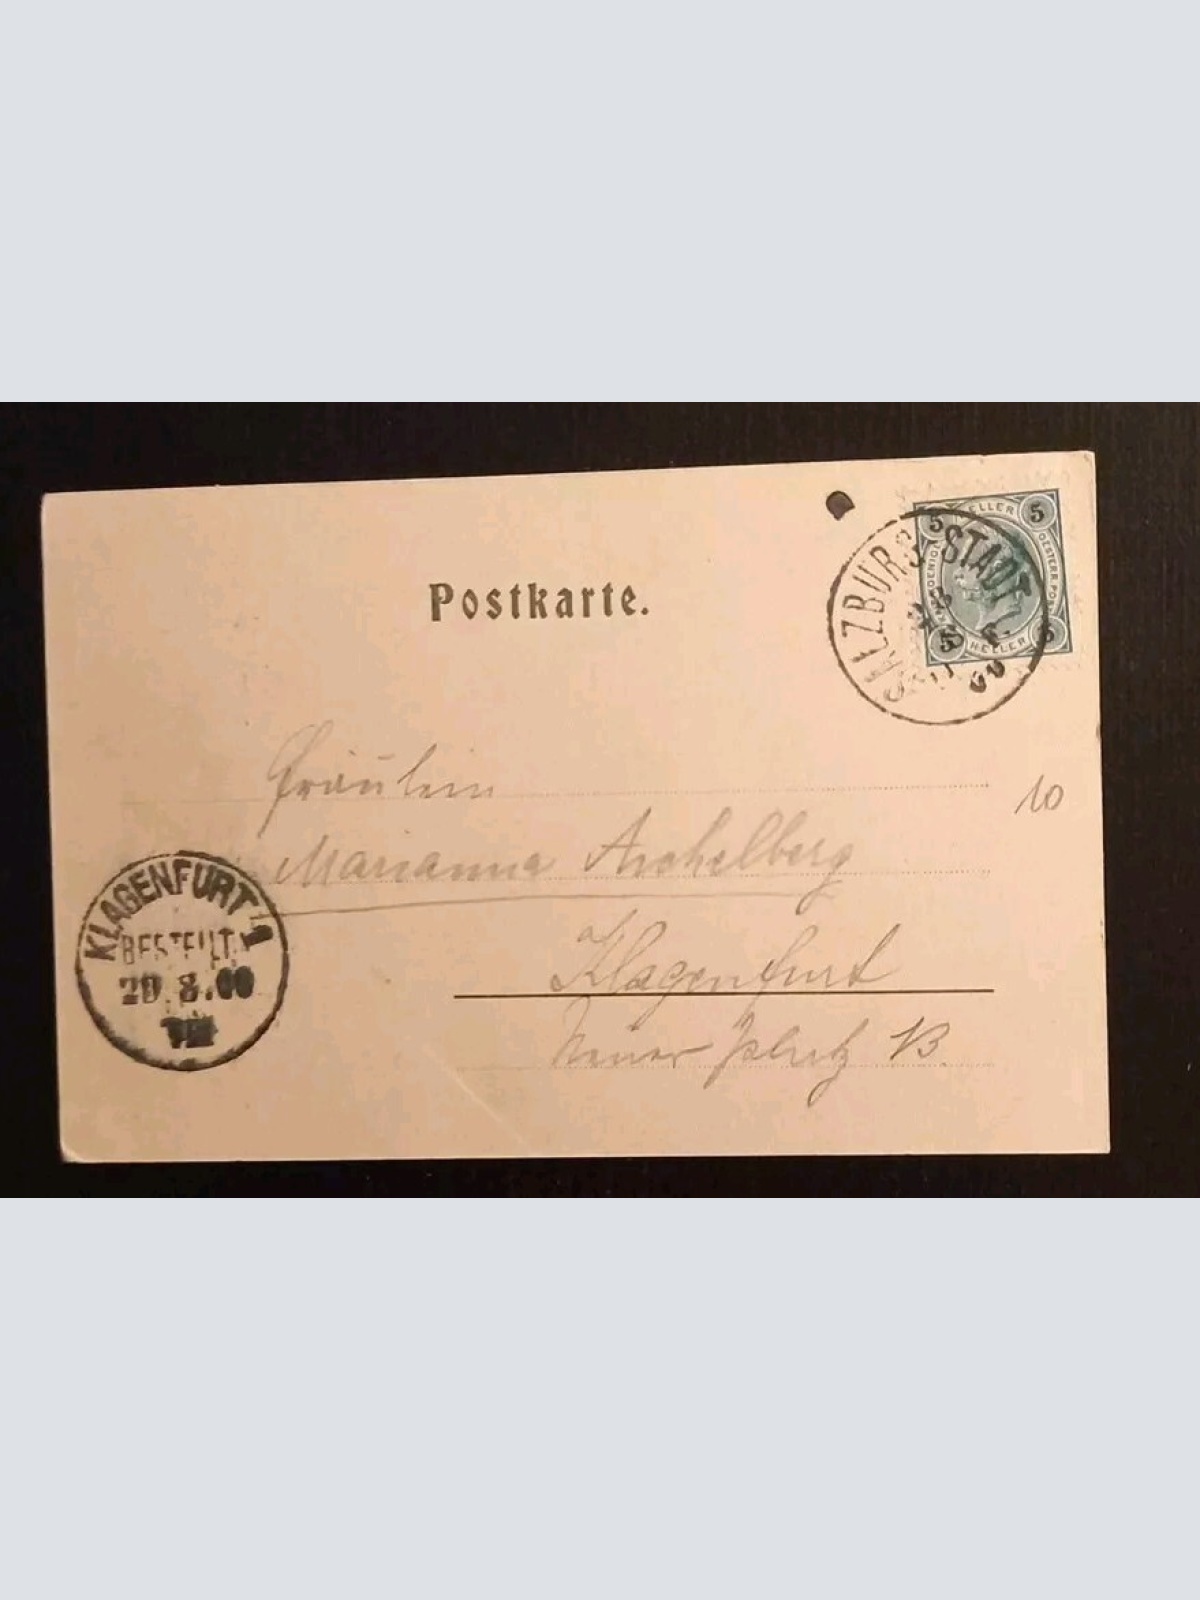 Postkarte.
5 HELLER 5
SALZBURG-STADT
28
8
00
5 HELLER 5
Fräulein
10
Marianna Aichelberg
KLAGENFURT 1
BESTELLT
a/
Klagenfurt
29.8.00
VIII
Neuer Platz 13.